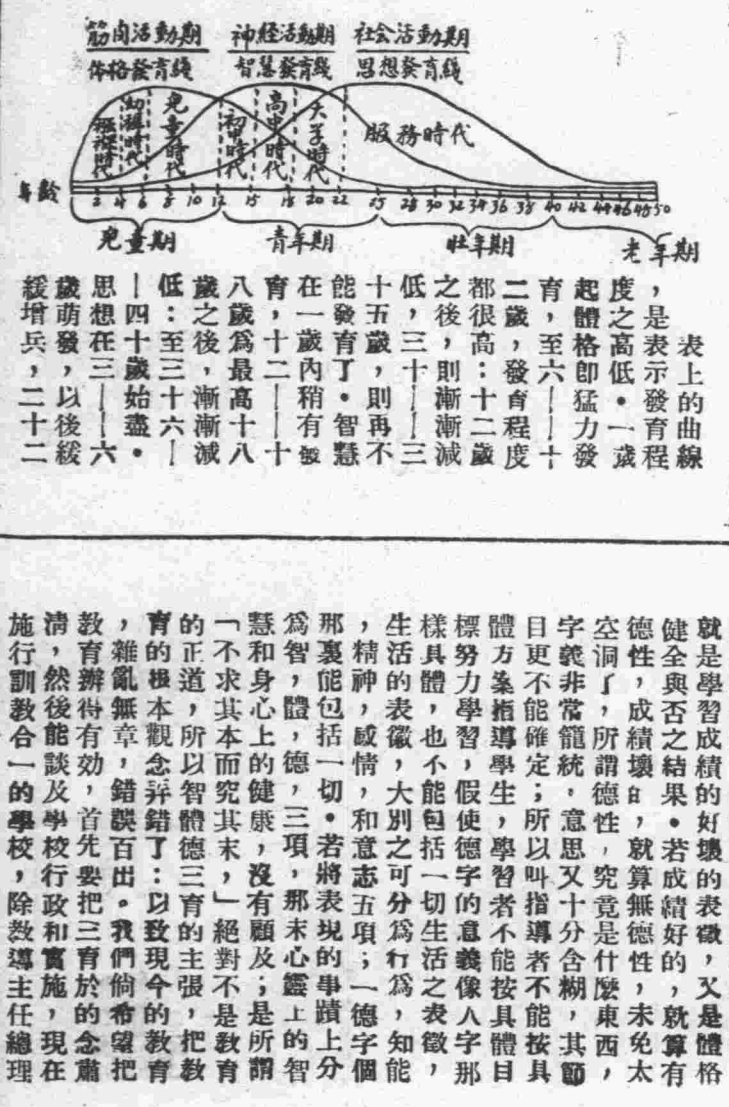 筋肉活動期 神経活動期 社会活動期
体格發育綫 智慧發育綫 思想發育綫
襁褓時代
幼稚時代
兒童時代
初中時代
高中時代
大学時代
服務時代
年齡 2 4 6 8 10 12 15 18 20 22 25 28 30 32 34 36 38 40 42 44 46 48 50
兒童期 青年期 壯年期 老年期
表上的曲線
，是表示發育程
度之高低・一歲
起體格卽猛力發
育，至六——十
二歲，發育程度
都很高：十二歲
之後，則漸漸減
低，三十——三
十五歲，則再不
能發育了・智慧
在一歲內稍有
育，十二——十
八歲爲最高十八
歲之後，漸漸減
低：至三十六—
—四十歲始盡・
思想在三——六
歲萌發，以後緩
緩增兵，二十二
就是學習成績的好壞的表徵，又是體格
健全與否之結果・若成績好的，就算有
德性，成績壞的，就算無德性，未免太
空洞了，所謂德性，究竟是什麼東西，
字義非常籠統，意思又十分含糊，其節
目更不能確定；所以叫指導者不能按具
體方案指導學生，學習者不能按具體目
標努力學習，假使德字的意義像人字那
樣具體，也不能包括一切生活之表徵，
生活的表徵，大別之可分爲行爲，知能
，精神，感情，和意志五項；一德字個
那裏能包括一切・若將表現的事蹟上分
爲智，體，德，三項，那末心靈上的智
慧和身心上的健康，沒有顧及；是所謂
「不求其本而究其末，」絕對不是教育
的正道，所以智體德三育的主張，把教
育的根本觀念弄錯了：以致現今的教育
，雜亂無章，錯誤百出。我們倘希望把
教育辦得有効，首先要把三育於的念肅
清，然後能談及學校行政和實施，現在
施行訓教合一的學校，除教導主任總理